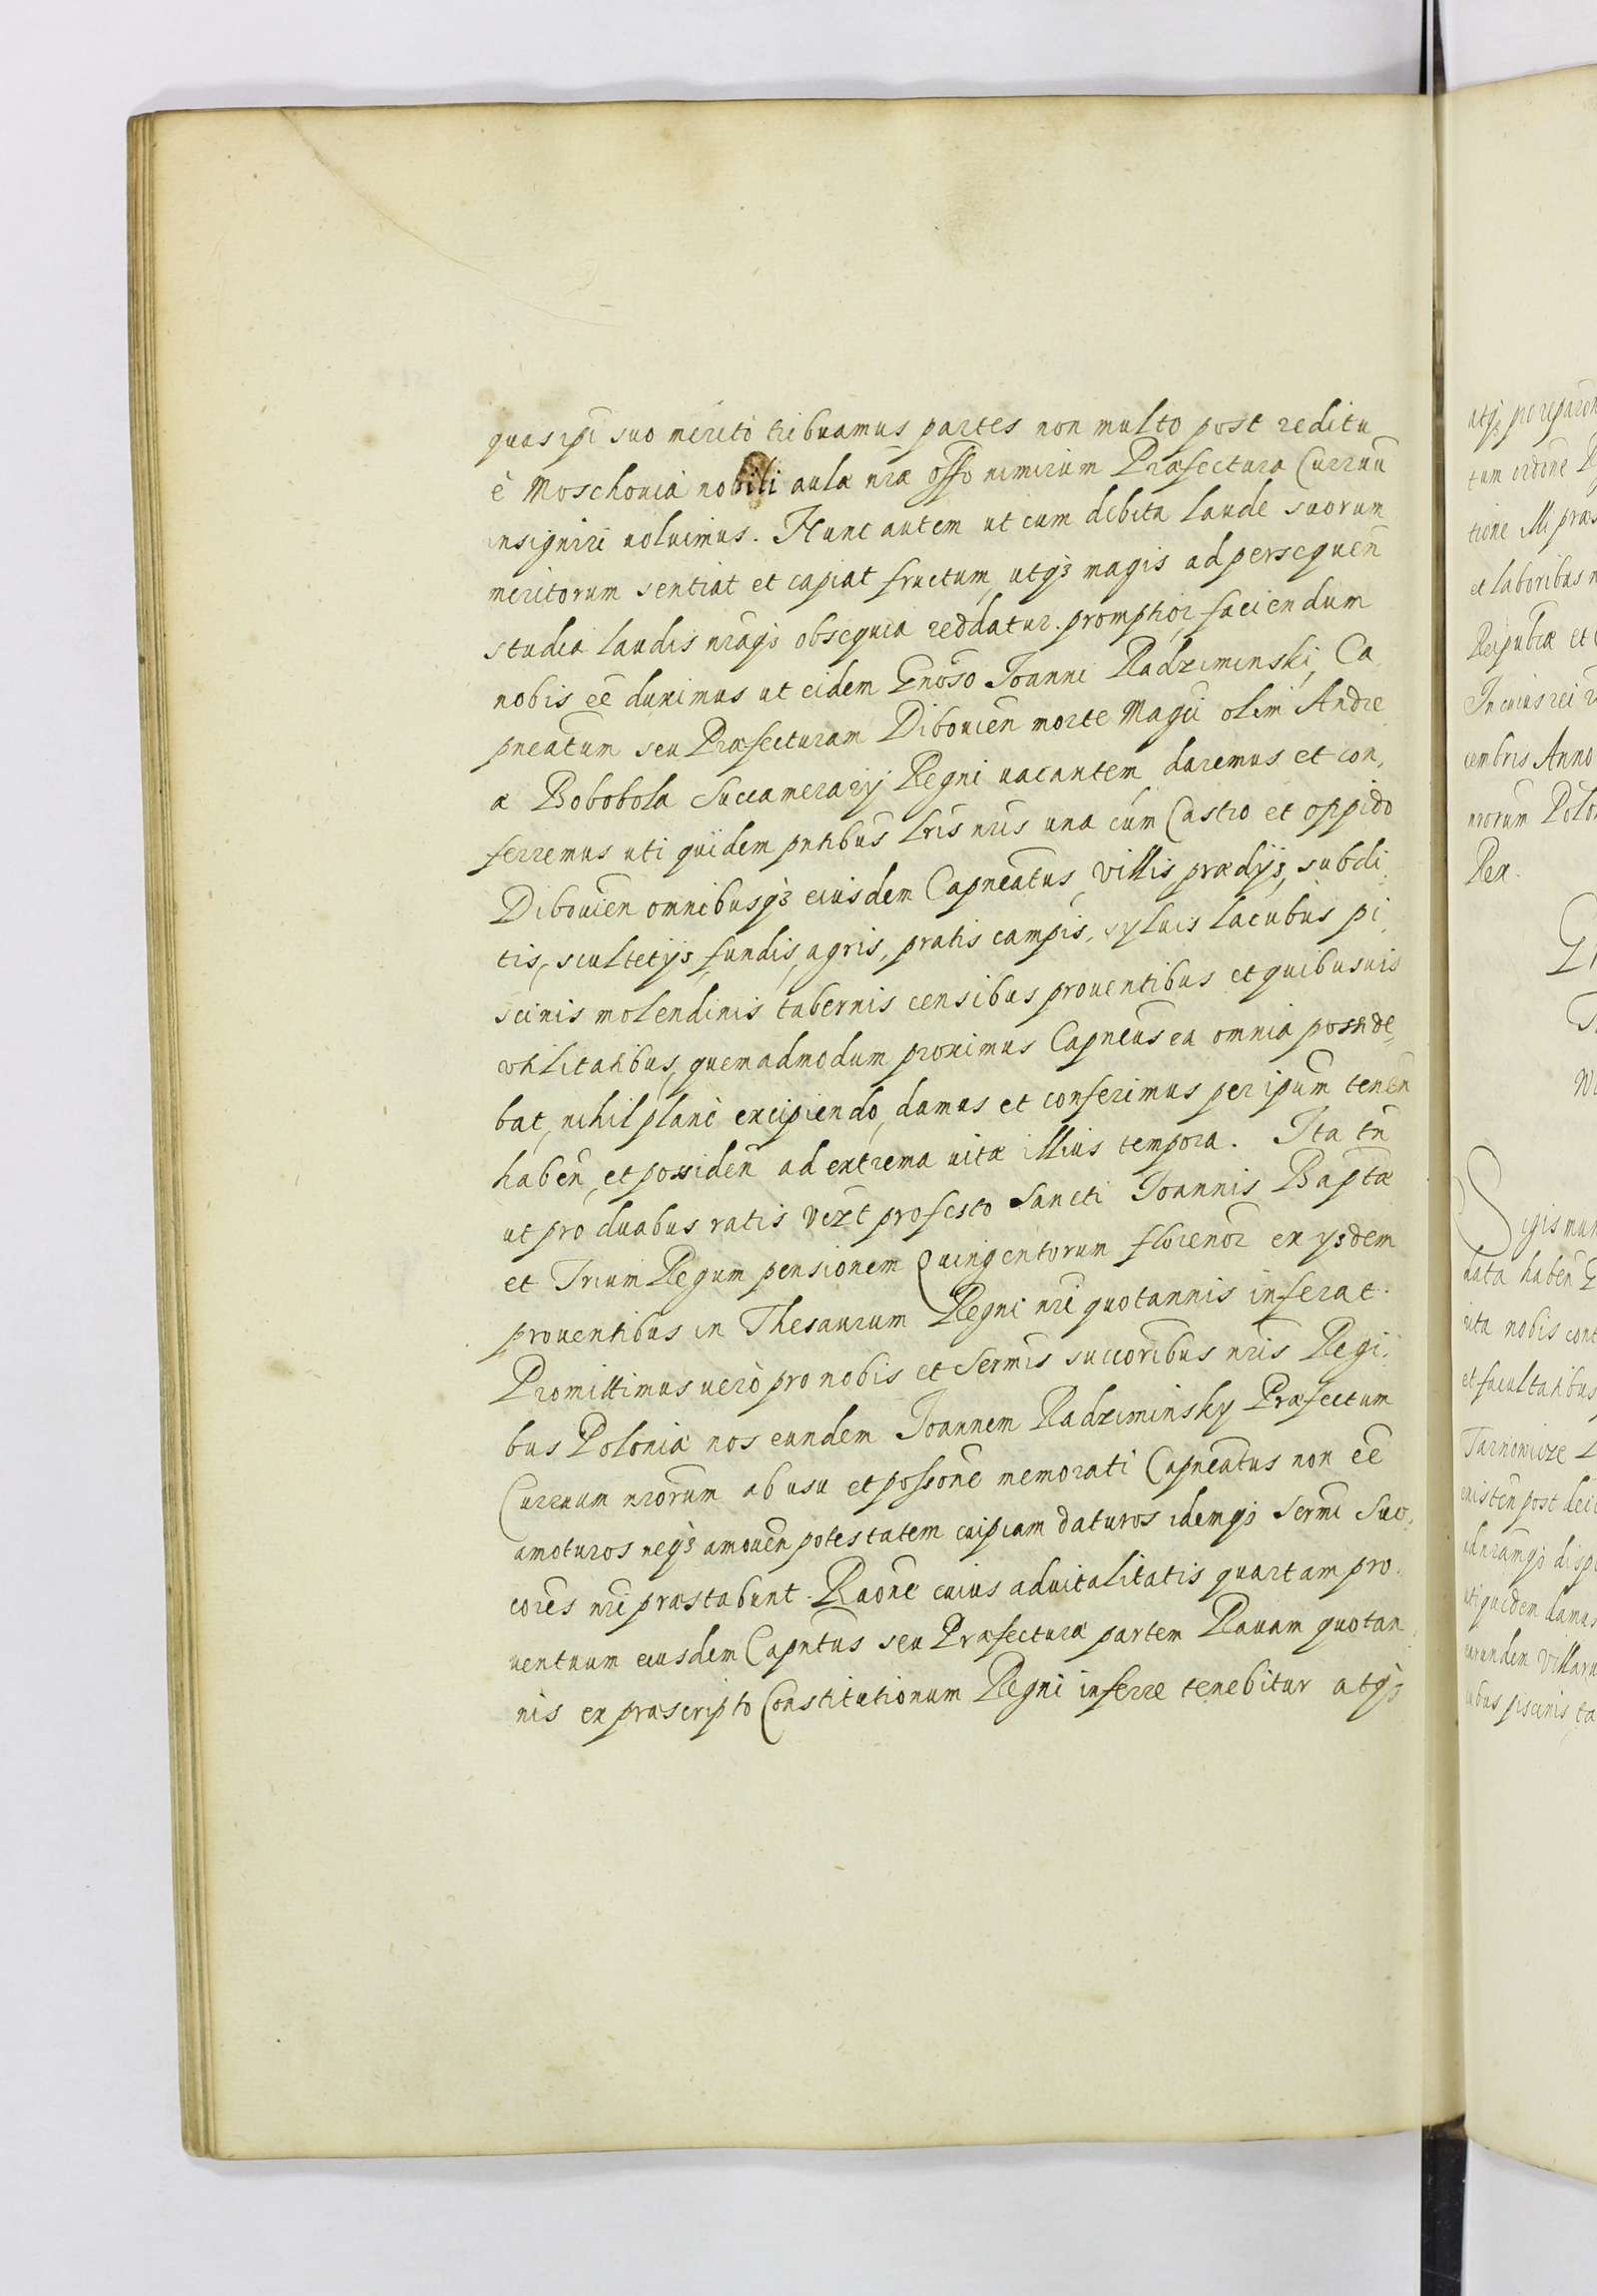 quas ipi suo merito tribuamus partes non multo post reditu
è Moschouia nobili aulæ nræ offo nimirum Præfectura Curruũ
insigniri uoluimus. Hunc autem ut cum debita laude suorum
meritorum sentiat et capiat fructum, utqȝ magis ad persequen̄
studia laudis nraqȝ obsequia reddatur promptior, faciendum
nobis eē duximus ut eidem Gnoso Ioanni Radziminski, Ca
pneatum seu Præfecturam Dibouien̄ morte Magci olim Andre
æ Bobobola Succamerarij Regni uacantem daremus et con,
ferremus uti quidem pntibus lris nris una cum Castro et oppido
Dibouien̄ omnibusqȝ eiusdem Capneatus, villis prædijs, subdi
tis, scultetijs, fundis, agris, pratis campis, syluis lacubus pi,
scinis molendinis tabernis censibus prouentibus et quibusuis
vtilitatibus, quemadmodum proximus Capneus ea omnia posside
bat, nihil planè excipiendo, damus et conferimus per ipum tenen̄
haben̄, et possiden̄ ad extrema uitæ illius tempora. Ita tn̄
ut pro duabus ratis vezt pro festo Sancti Ioannis Baptæ
et Trium Regum pensionem Quingentorum florenor ex ysdem
prouentibus in Thesaurum Regni nri quotannis inferat.
Promittimus uerò pro nobis et Sermis succoribus nris Regi,
bus Poloniæ nos eundem Ioannem Radziminsky Præfectum
Curruum nrorum ab usu et possone memorati Capneatus non eē
amoturos neqȝ amouen̄ potestatem cuipiam daturos idemqȝ Sermi Suc,
cores nri præstabunt. Raone cuius aduitalitatis quartam pro,
uentuum eiusdem Capntus seu Præfecturæ partem Rauam quotan
nis ex præscripto Constitutionum Regni inferre tenebitur atqȝ
tum ordine
tione illi præs
et laboribus
Reipubcæ et
In cuius rei
cembris Anno
nrorum Polo
Rex.
Sigismun
data haben̄
uta nobis cont
et facultatibus
post
uti quidem damus
earundem villaru